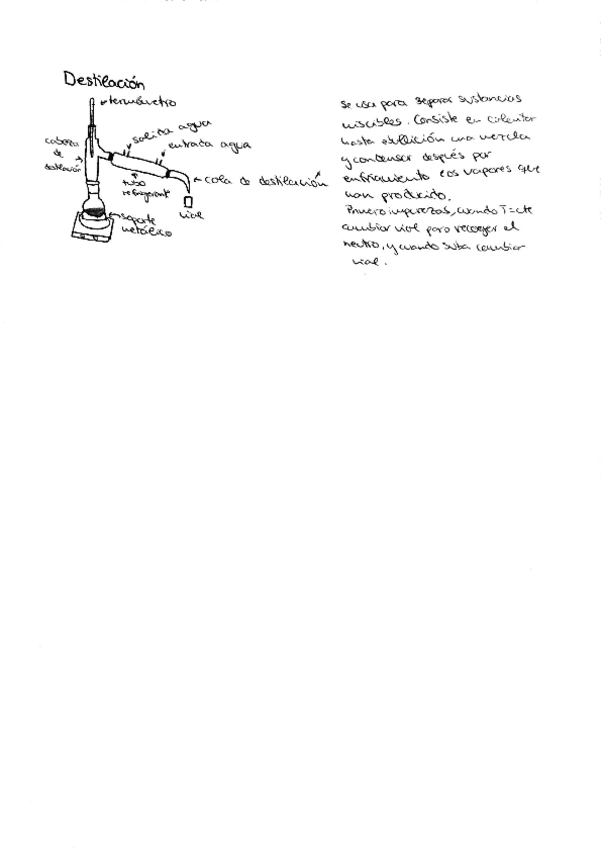 Destilación
termómetro
salida agua
entrada agua
cabeza
de
destilación
tubo
refrigerant
cola de destilación
vial
soporte
metálico
Se usa para separar sustancias
miscibles. Consiste en calentar
hasta ebullición una mezcla
y condensar después por
enfriamiento los vapores que
han producido.
Primero impurezas, cuando T=cte
cambiar vial para recoger el
neutro, y cuando suba cambiar
vial.